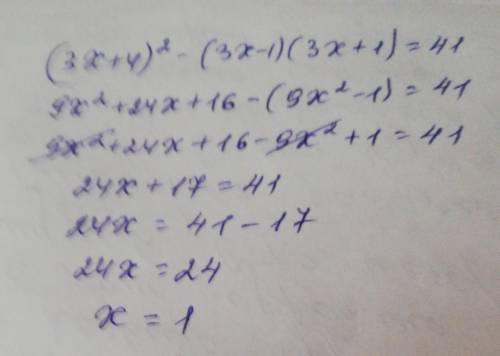 (3x+4)² - (3x-1)(3x+1) = 41
9x² + 24x + 16 - (9x² - 1) = 41
9x² + 24x + 16 - 9x² + 1 = 41
24x + 17 = 41
24x = 41 - 17
24x = 24
x = 1